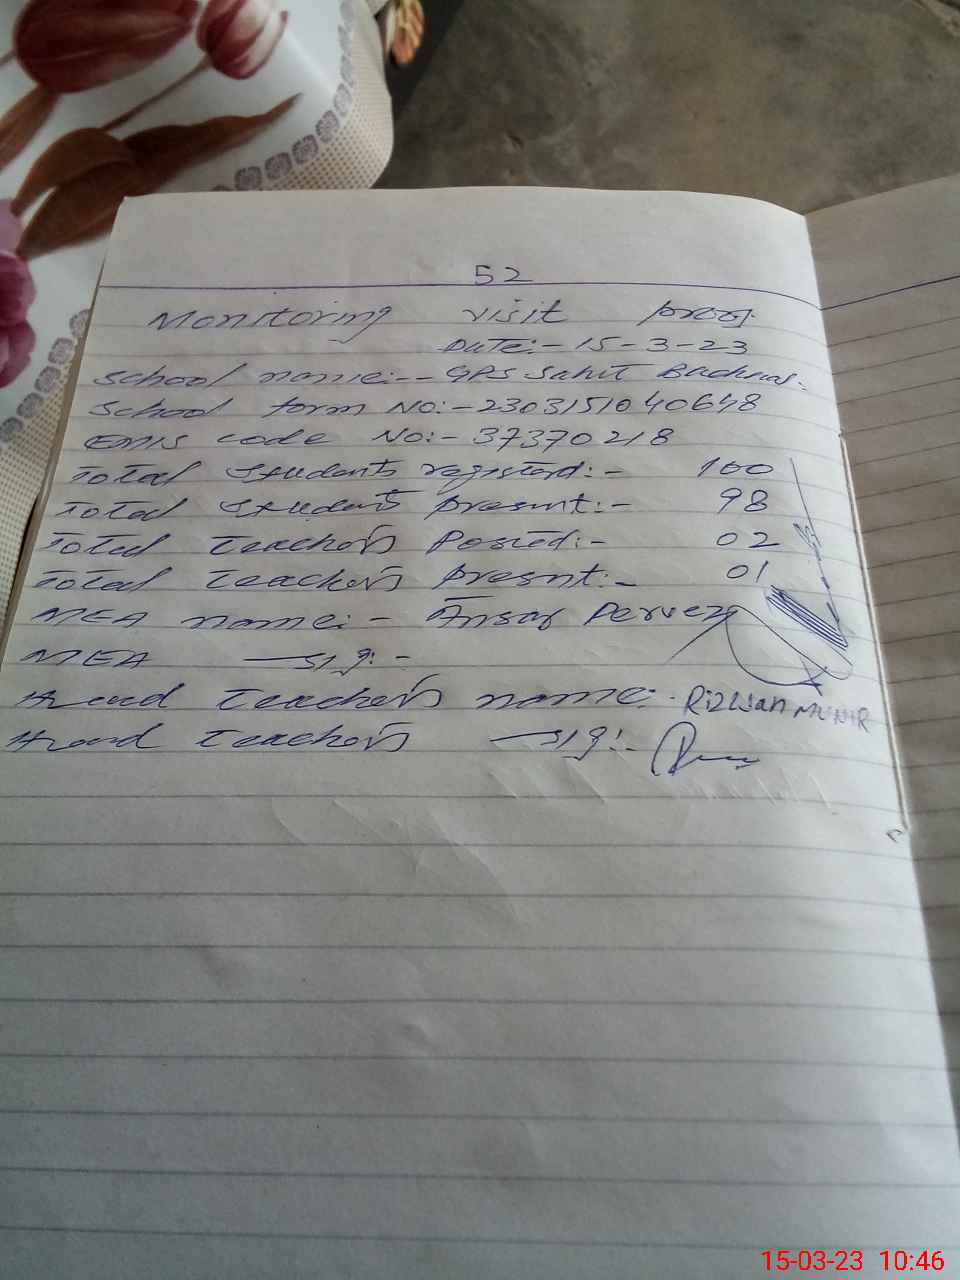 52
Monitoring visit proof
Date:- 15-3-23
School name:-- GPS Sahit Badhal:
School form No:- 230315104 0648
EMIS code No:- 37370218
Total students registerd:- 100
Total student presnt:- 98
Total teachers Posted:- 02
Total teachers presnt:- 01
MEA name:- Ansar Pervez
MEA sig:-
Head teachers name:- Rizwan MUNIR
Head teachers sig:-
15-03-23 10:46